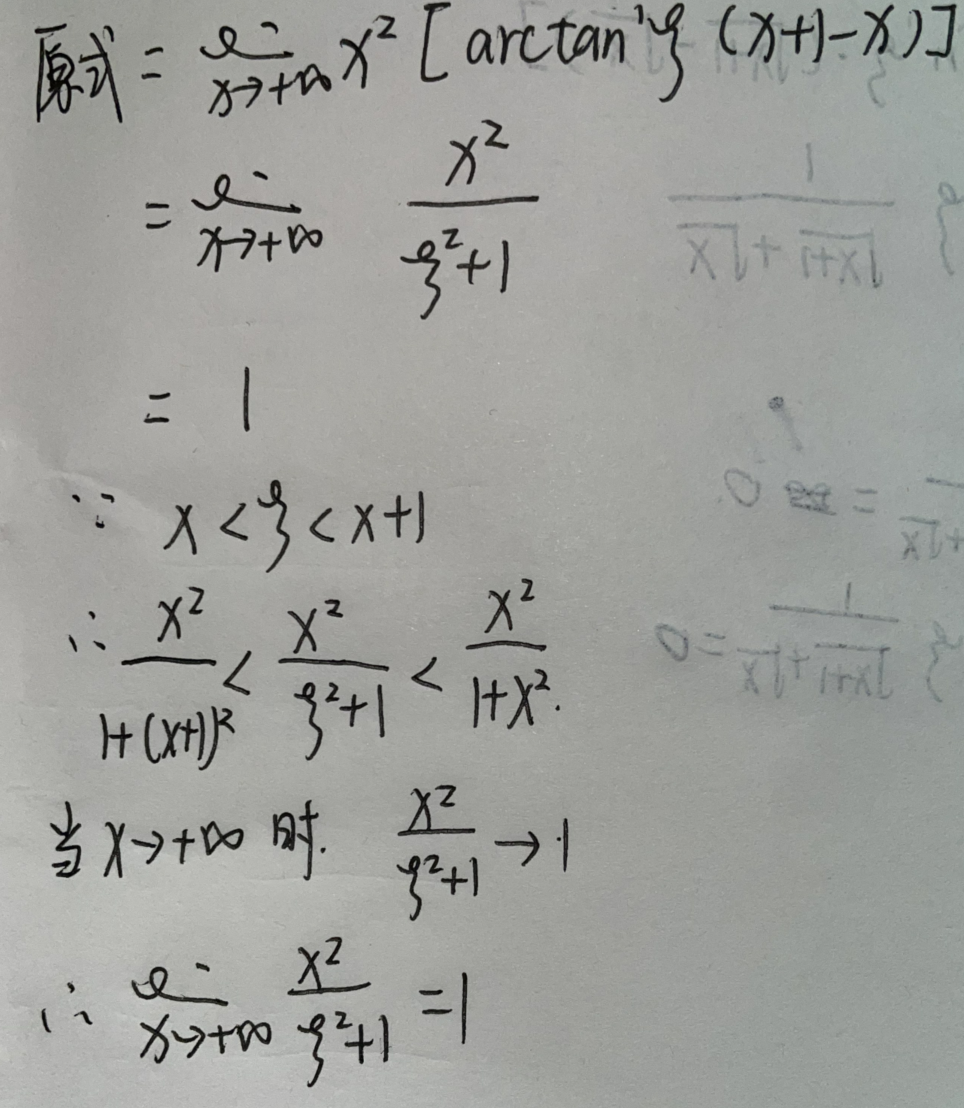 原式 = lim x→+∞ x² [arctan'ξ (x+1-x)]
= lim x→+∞ x²/(ξ²+1)
= 1
∵ x < ξ < x+1
∴ x²/(1+(x+1)²) < x²/(ξ²+1) < x²/(1+x²).
当 x→+∞ 时. x²/(ξ²+1) → 1
∴ lim x→+∞ x²/(ξ²+1) = 1